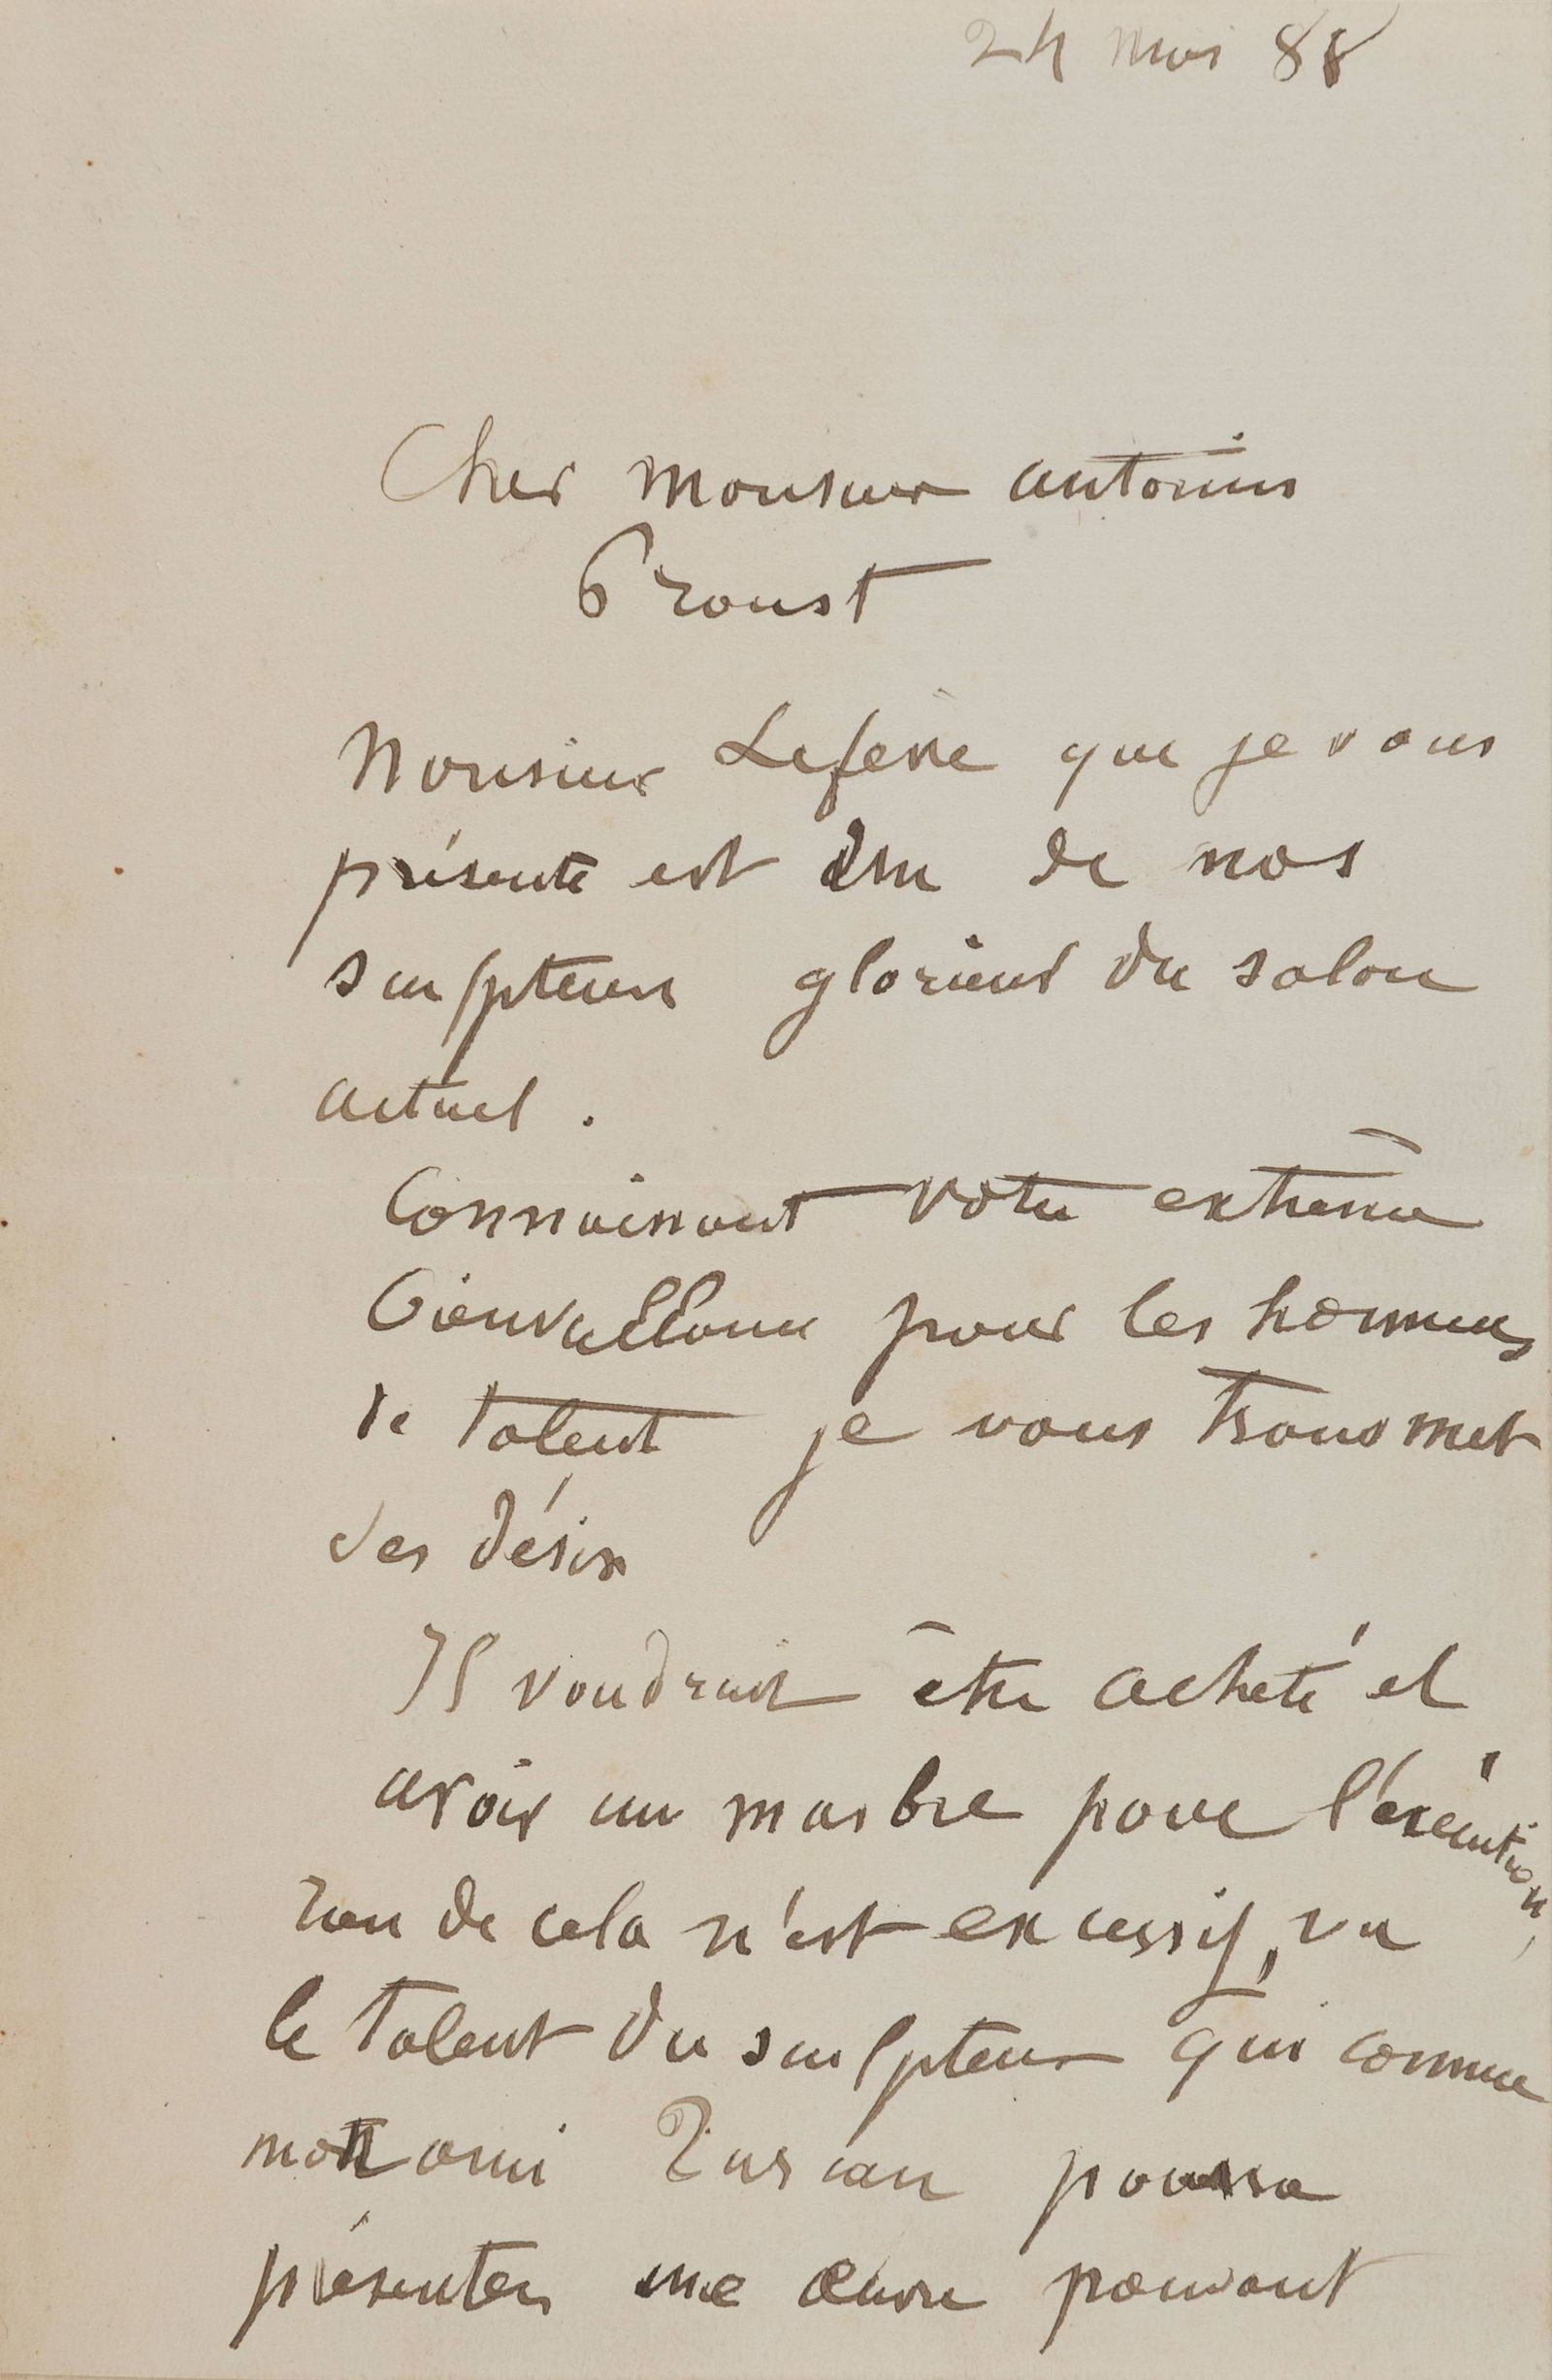 24 mai 88
Cher monsieur antonin
Proust
Monsieur Lefevre que je vous
présente est un de nos
sculpteurs glorieux du salon
actuel.
Connaissant votre extrême
bienveillance pour les hommes
de talent je vous transmet
ses désirs
Il voudrait être acheté et
avoir un marbre pour l'exécution,
rien de cela n'est excessif, vu
le talent du sculpteur qui comme
mon ami pourra
présenter une œuvre pouvant